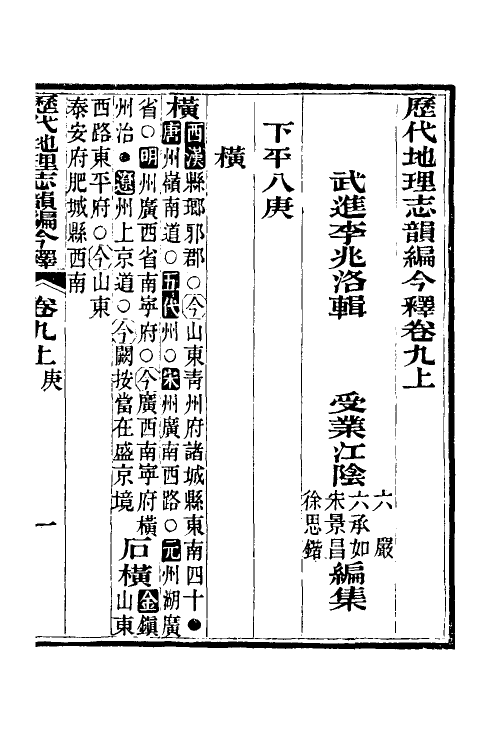 歷代地理志韻編今釋卷九上
武進李兆洛輯
受業江陰
六嚴
六承如
朱景昌
徐思鍇
編集
下平八庚
橫
橫西漢縣瑯邪郡○今山東青州府諸城縣東南四十●
唐州嶺南道○五代州○宋州廣南西路○元州湖廣
省○明州廣西省南寧府○今廣西南寧府橫
州治●遼州上京道○今闕按當在盛京境
石橫金鎮
山東
西路東平府○今山東
泰安府肥城縣西南
歷代地理志韻編今釋
卷九上
庚
一